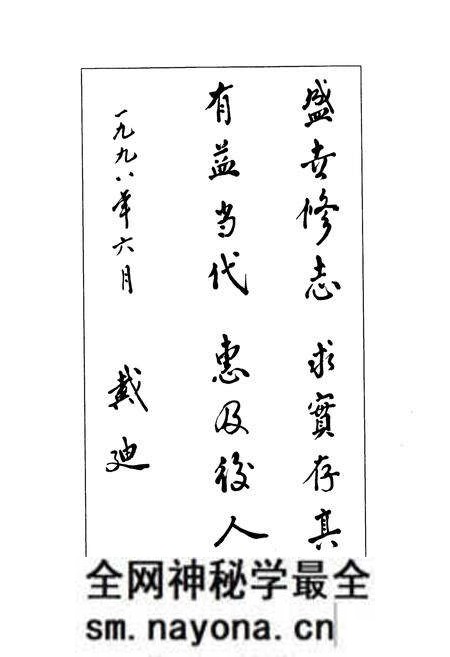 盛世修志 求實存真
有益当代 惠及後人
一九九八年六月 戴迪
全网神秘学最全
sm.nayona.cn